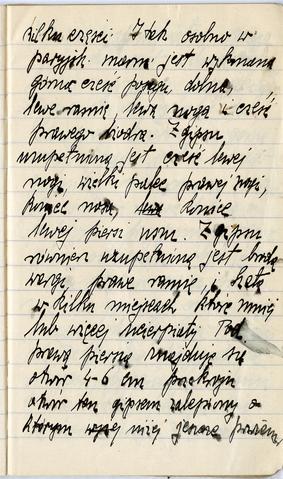 kilka części I tak osobno w
paryjsk. marm jest wykonana
górna część posągu, dolna,
lewe ramię, lewa noga i część
prawego biodra. Z gipsu
uzupełnioną jest część lewej
nogi, wielki palec prawej nogi,
koniec nosa, koniec
lewej piersi nam. Z gipsu
również uzupełnioną jest broda
wargi, prawe ramię, i szata
w kilku miejscach które mniej
lub więcej ucierpiały Pod
prawą piersią znajduje się
otwór 4-6 cm przekroju
otwór ten gipsem zalepiony o
którym niżej jeszcze